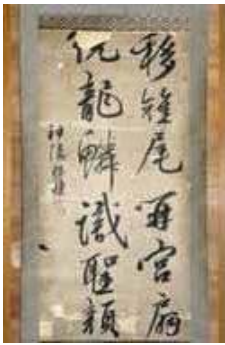 移雉尾開宮扇
繞龍鱗識聖顏